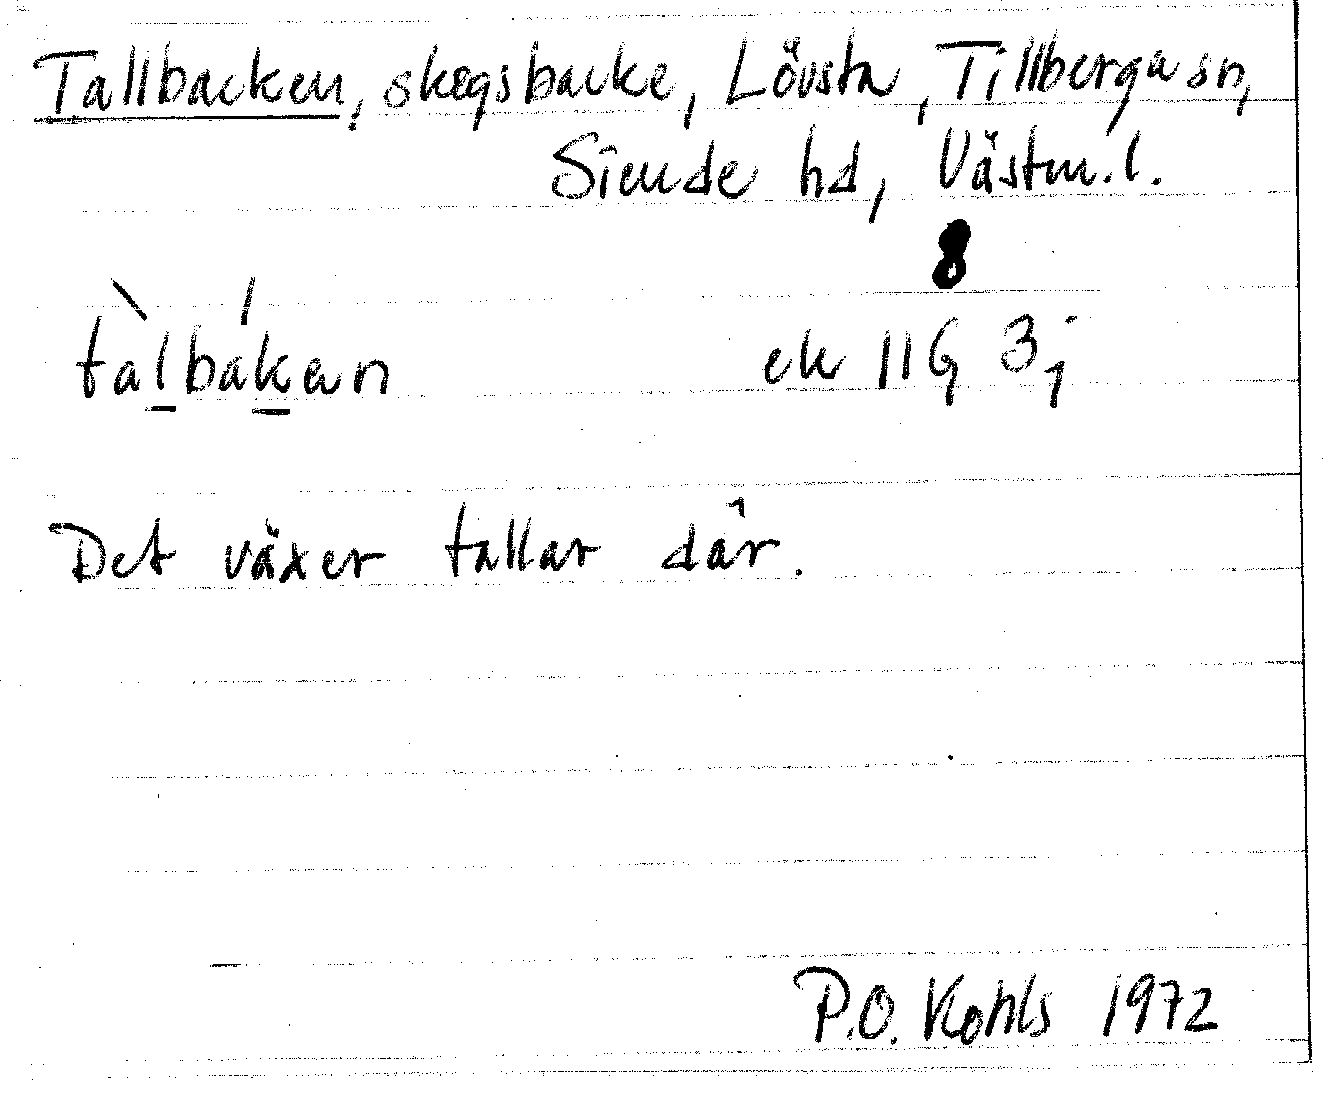 Tallbacken, skogsbacke, Lövsta, Tillberga sn,
Siende hd, Västm. l.
8
tàlbákan ek 11G 3j
Det växer tallar där.
P.O. Kohls 1972